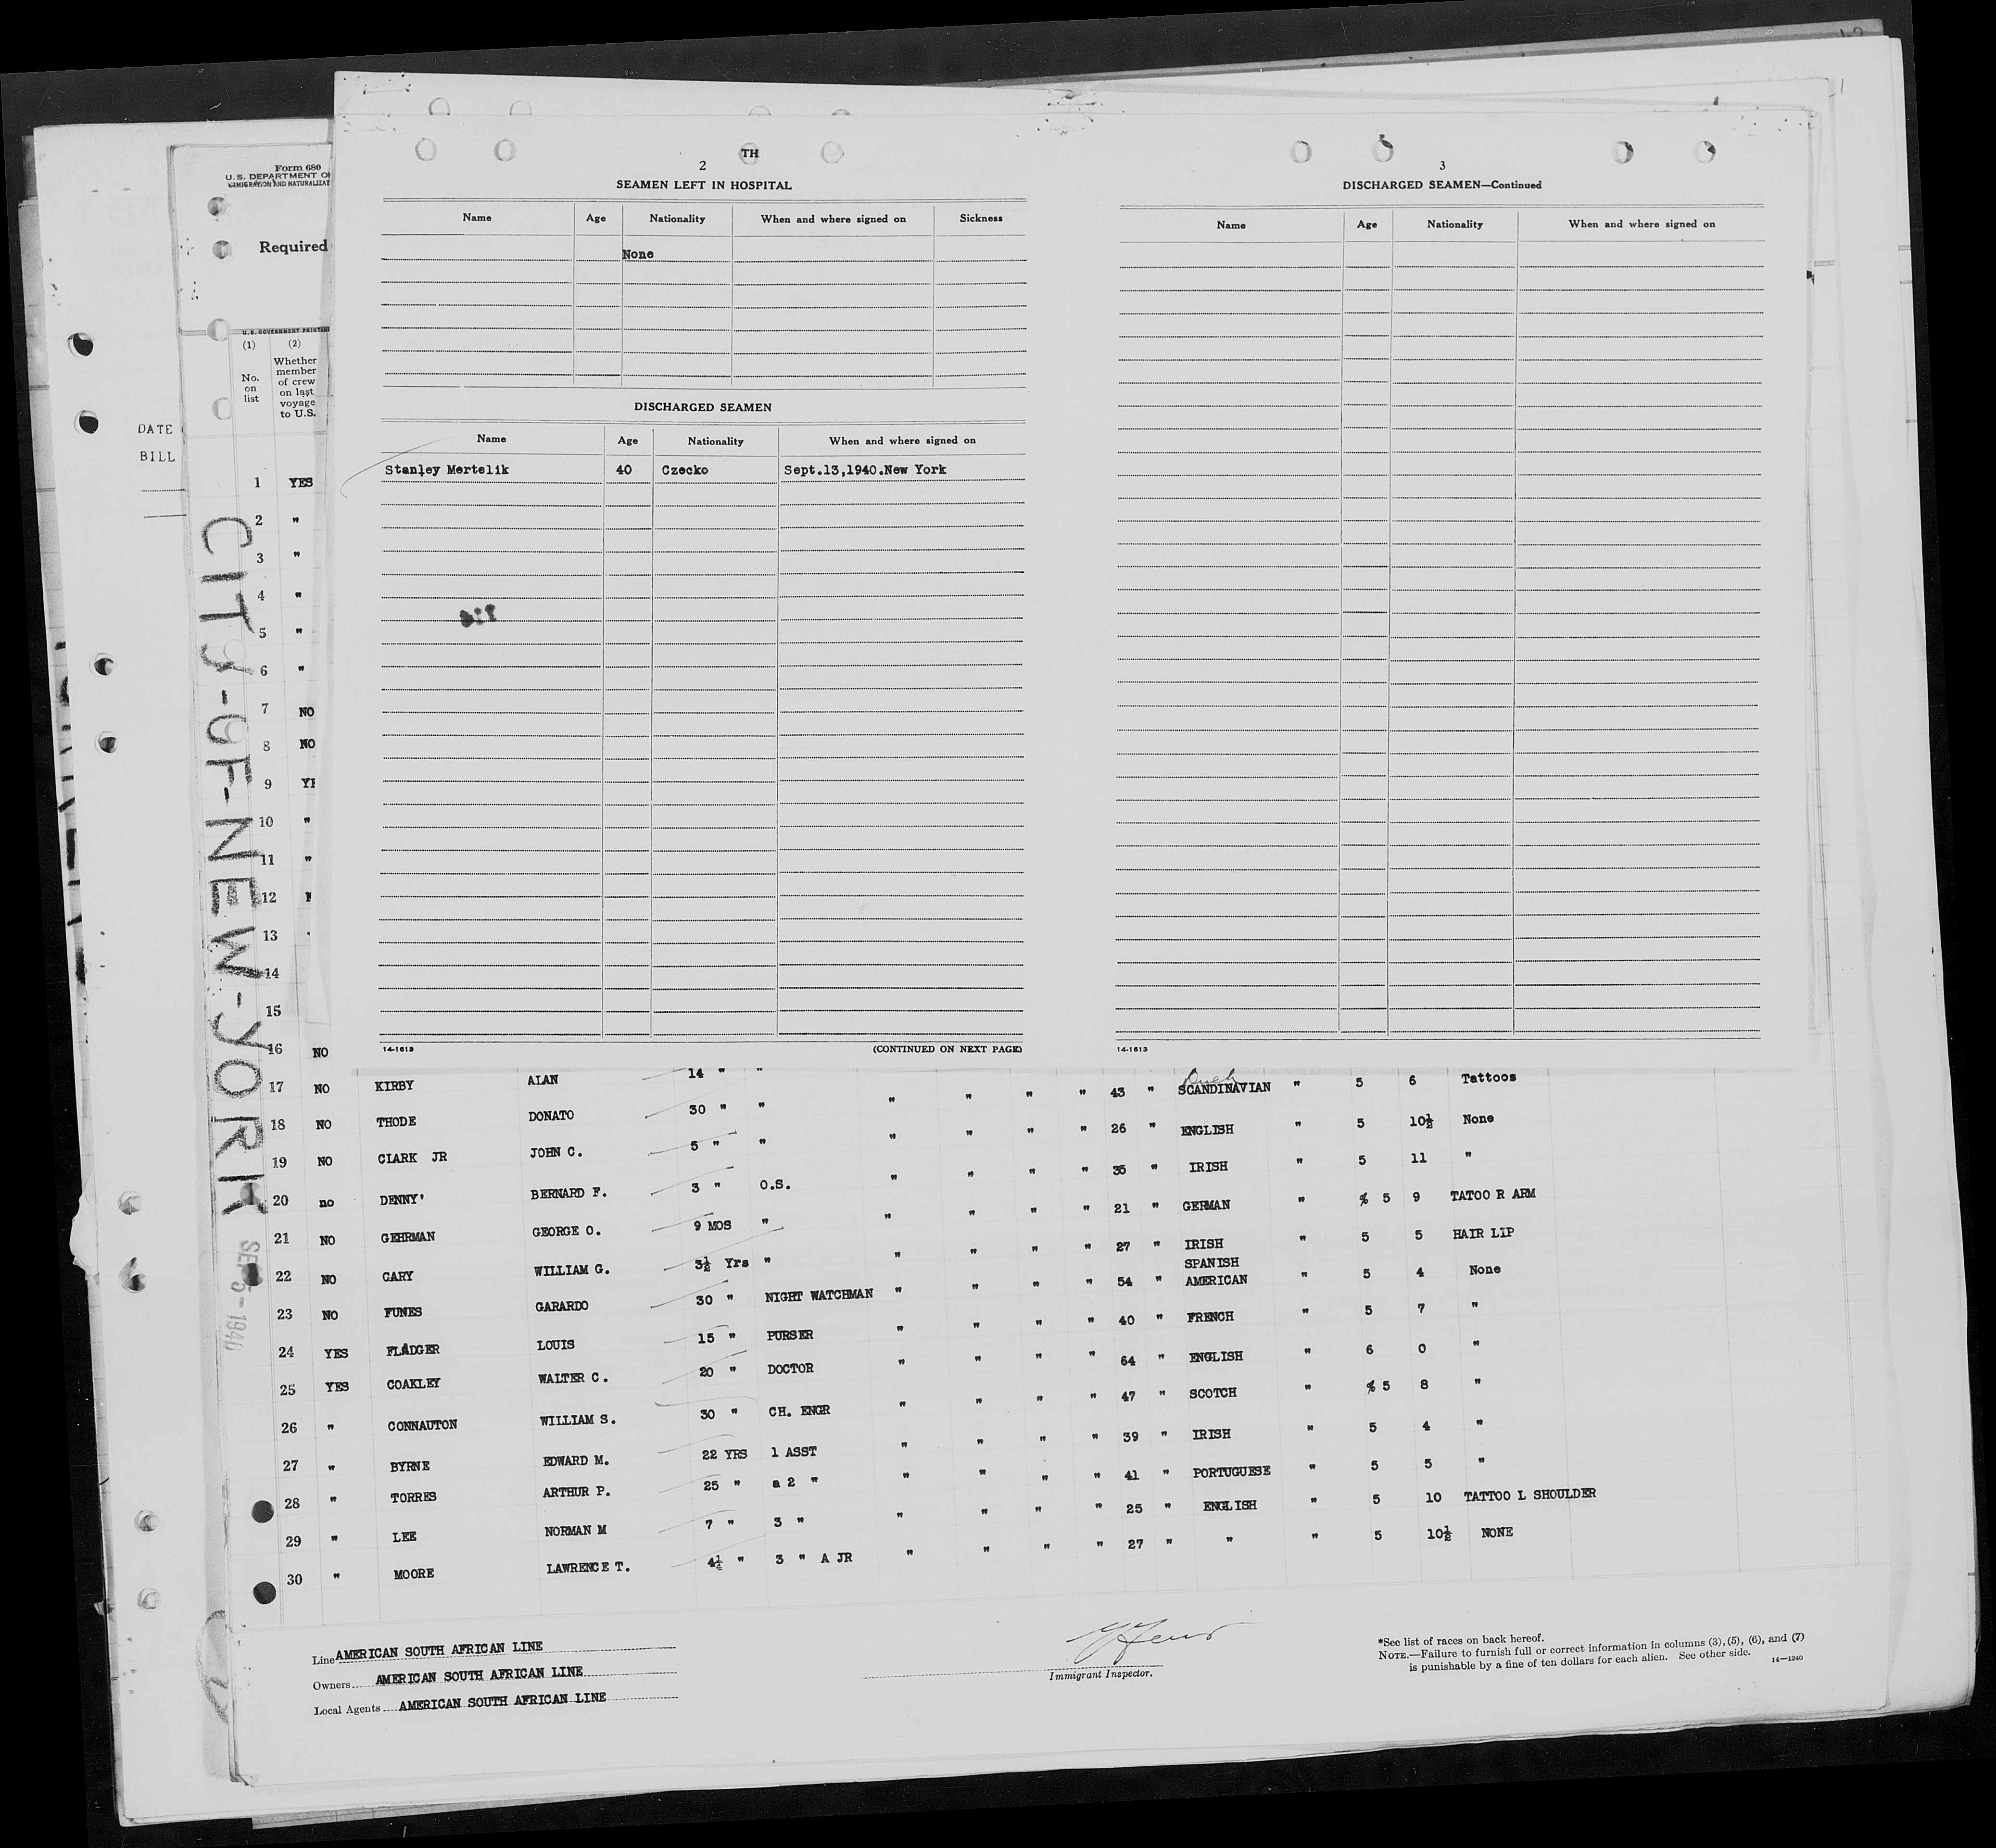 Form 680
U.S. DEPARTMENT O
Required
U.S. GOVERNMENT PRINTIN
(1) (2)
No. on list
Whether member of crew on last voyage to U.S.
DATE
BILL
CITY-OF-NEW-YORK SEP 5-1940
TH
2
SEAMEN LEFT IN HOSPITAL
Name Age Nationality When and where signed on Sickness
None
DISCHARGED SEAMEN
Name Age Nationality When and where signed on
Stanley Mertelik 40 Czecko Sept.13,1940.New York
14-1613 (CONTINUED ON NEXT PAGE)
3
DISCHARGED SEAMEN—Continued
Name Age Nationality When and where signed on
14-1613
1 YES
2 "
3 "
4 "
5 "
6 "
7 NO
8 NO
9 YE
10 "
11 "
12
13
14
15
16 NO
17 NO KIRBY ALAN 14 " " " " " " 43 " SCANDINAVIAN " 5 6 Tattoos
18 NO THODE DONATO 30 " " " " " " 26 " ENGLISH " 5 10½ None
19 NO CLARK JR JOHN C. 5 " " " " " " 35 " IRISH " 5 11 "
20 no DENNY' BERNARD F. 3 " O.S. " " " " 21 " GERMAN " 5 9 TATOO R ARM
21 NO GEHRMAN GEORGE O. 9 MOS " " " " " 27 " IRISH " 5 5 HAIR LIP
22 NO CARY WILLIAM G. 3½ Yrs " " " " " 54 " SPANISH AMERICAN " 5 4 None
23 NO FUNES GARARDO 30 " NIGHT WATCHMAN " " " " 40 " FRENCH " 5 7 "
24 YES FLADGER LOUIS 15 " PURSER " " " " 64 " ENGLISH " 6 0 "
25 YES COAKLEY WALTER C. 20 " DOCTOR " " " " 47 " SCOTCH " 5 8 "
26 " CONNAUTON WILLIAM S. 30 " CH. ENGR " " " " 39 " IRISH " 5 4 "
27 " BYRNE EDWARD M. 22 YRS 1 ASST " " " " 41 " PORTUGUESE " 5 5 "
28 " TORRES ARTHUR P. 25 " a 2 " " " " " 25 " ENGLISH " 5 10 TATTOO L SHOULDER
29 " LEE NORMAN M 7 " 3 " " " " " 27 " " " 5 10½ NONE
30 " MOORE LAWRENCE T. 4½ " 3 " A JR " " " "
Line AMERICAN SOUTH AFRICAN LINE
Owners AMERICAN SOUTH AFRICAN LINE
Local Agents AMERICAN SOUTH AFRICAN LINE
Immigrant Inspector.
*See list of races on back hereof.
NOTE.—Failure to furnish full or correct information in columns (3), (5), (6), and (7)
is punishable by a fine of ten dollars for each alien. See other side. 14—1240